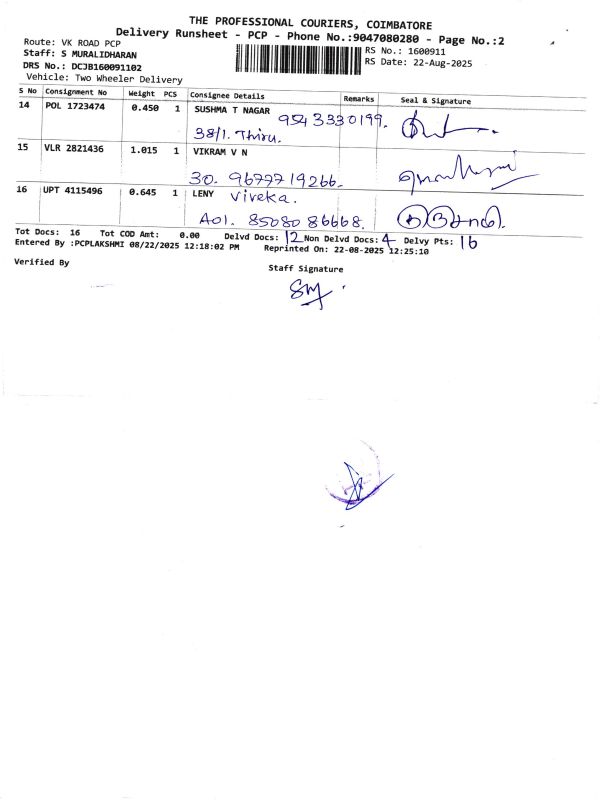 THE PROFESSIONAL COURIERS, COIMBATORE
Delivery Runsheet - PCP - Phone No.:9047080280 - Page No.:2
Route: VK ROAD PCP
RS No.: 1600911
Staff: S MURALIDHARAN
RS Date: 22-Aug-2025
DRS No.: DCJB160091102
Vehicle: Two Wheeler Delivery
S No Consignment No Weight PCS Consignee Details Remarks Seal & Signature
14 POL 1723474 0.450 1 SUSHMA T NAGAR
9543330199.
38/1. Thiru.
15 VLR 2821436 1.015 1 VIKRAM V N
30. 9677719266.
16 UPT 4115496 0.645 1 LENY Viveka.
A01. 85080 86668.
Tot Docs: 16 Tot COD Amt: 0.00 Delvd Docs: 12 Non Delvd Docs: 4 Delvy Pts: 16
Entered By :PCPLAKSHMI 08/22/2025 12:18:02 PM Reprinted On: 22-08-2025 12:25:10
Verified By
Staff Signature